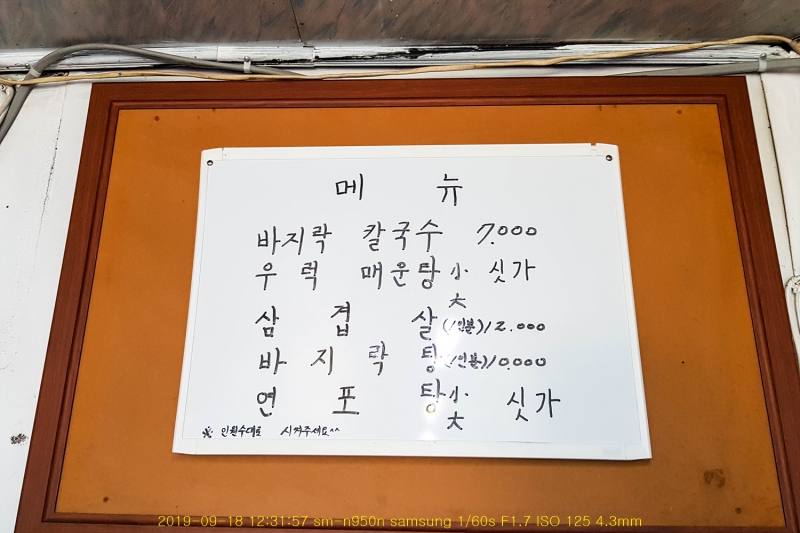 메 뉴
바지락 칼국수 7.000
우 럭 매운탕 小 싯가
大
삼 겹 살 (1인분) 12.000
바 지 락 탕 (1인분) 10.000
연 포 탕 小 싯가
大
※ 인원수대로 시켜주세요^^
2019-09-18 12:31:57 sm-n950n samsung 1/60s F1.7 ISO 125 4.3mm